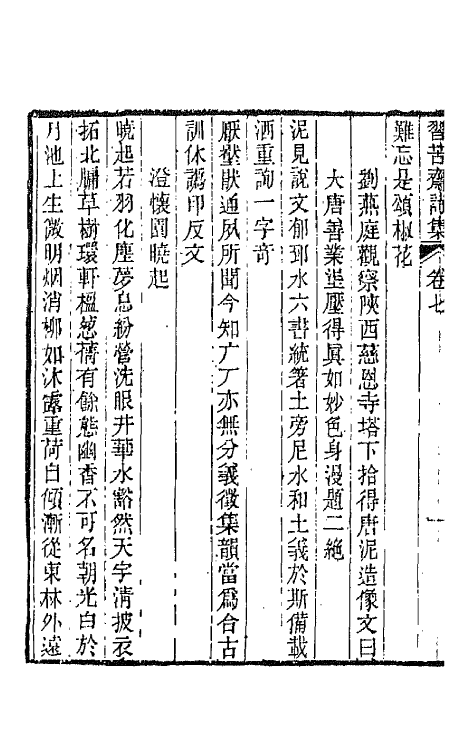 習苦齋詩集 卷七
難忘是頌椒花
劉燕庭觀察陝西慈恩寺塔下拾得唐泥造像文曰
大唐善業埿壓得眞如妙色身漫題二絶
泥見說文郁郅水六書統箸土旁尼水和土義於斯備載
洒重詢一字奇
厭壓猒通夙所聞今知广厂亦無分義徵集韻當爲合古
訓休譌印反文
澄懷園曉起
曉起若羽化塵夢息紛營洗眼井華水豁然天宇淸披衣
拓北牖草樹環軒楹蔥蒨有餘態幽香不可名朝光白於
月池上生微明烟消柳如沐露重荷自傾漸從東林外遠